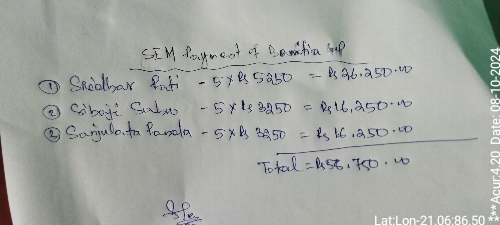 SEM Payment of
① Sridhar Pati - 5 × Rs 5250 = Rs 26,250.00
② Sibaji Sahu - 5 × Rs 3250 = Rs 16,250.00
③ Sanjulata Panda - 5 × Rs 3250 = Rs 16,250.00
Total = Rs 58,750.00
Lat:Lon-21.06:86.50
***Acur:4.20 Date:08-10-2024